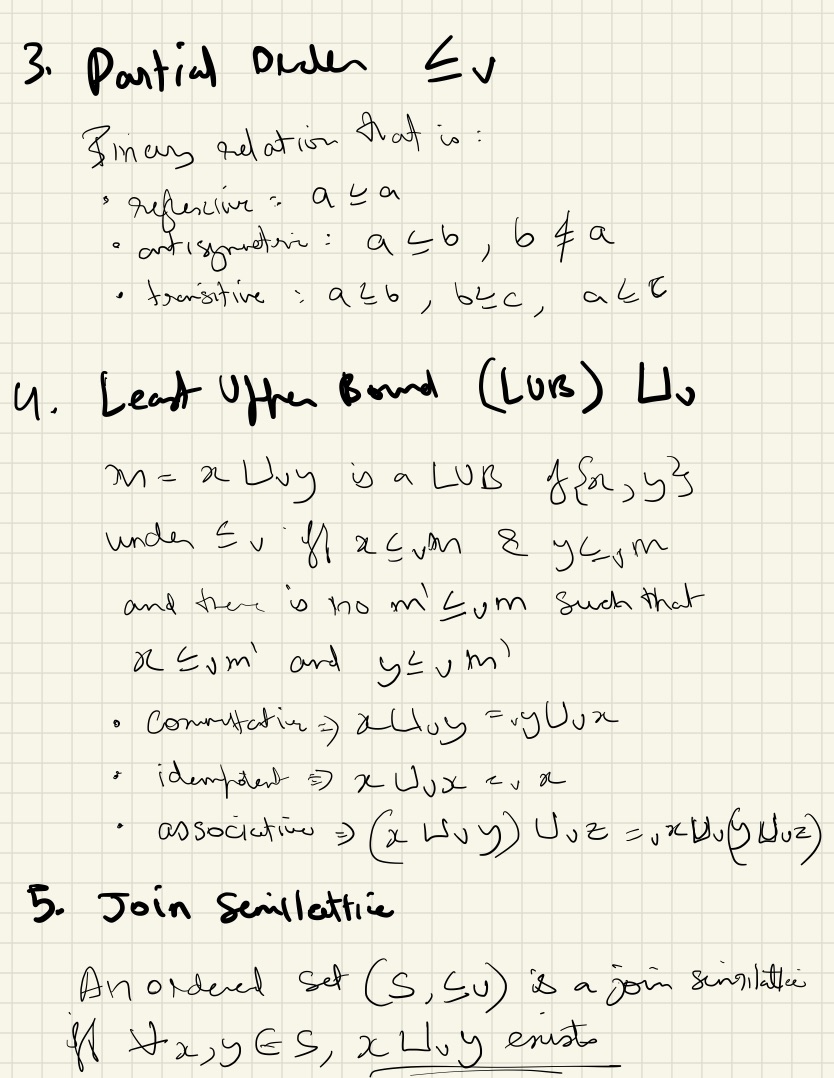 3. Partial Order ≤ᵥ
Binary relation that is :
• reflexive : a ≤ a
• antisymmetric : a ≤ b , b ≰ a
• transitive : a ≤ b , b ≤ c, a ≤ c
4. Least Upper Bound (LUB) ⊔ᵥ
m = x ⊔ᵥ y is a LUB of {x, y}
under ≤ᵥ iff x ≤ᵥ m & y ≤ᵥ m
and there is no m' ≤ᵥ m such that
x ≤ᵥ m' and y ≤ᵥ m'
• Commutative ⇒ x ⊔ᵥ y =ᵥ y ⊔ᵥ x
• idempotent ⇒ x ⊔ᵥ x =ᵥ x
• associative ⇒ (x ⊔ᵥ y) ⊔ᵥ z =ᵥ x ⊔ᵥ (y ⊔ᵥ z)
5. Join Semillattice
An ordered set (S, ≤ᵥ) is a join similattice
iff ∀ x, y ∈ S, x ⊔ᵥ y exists